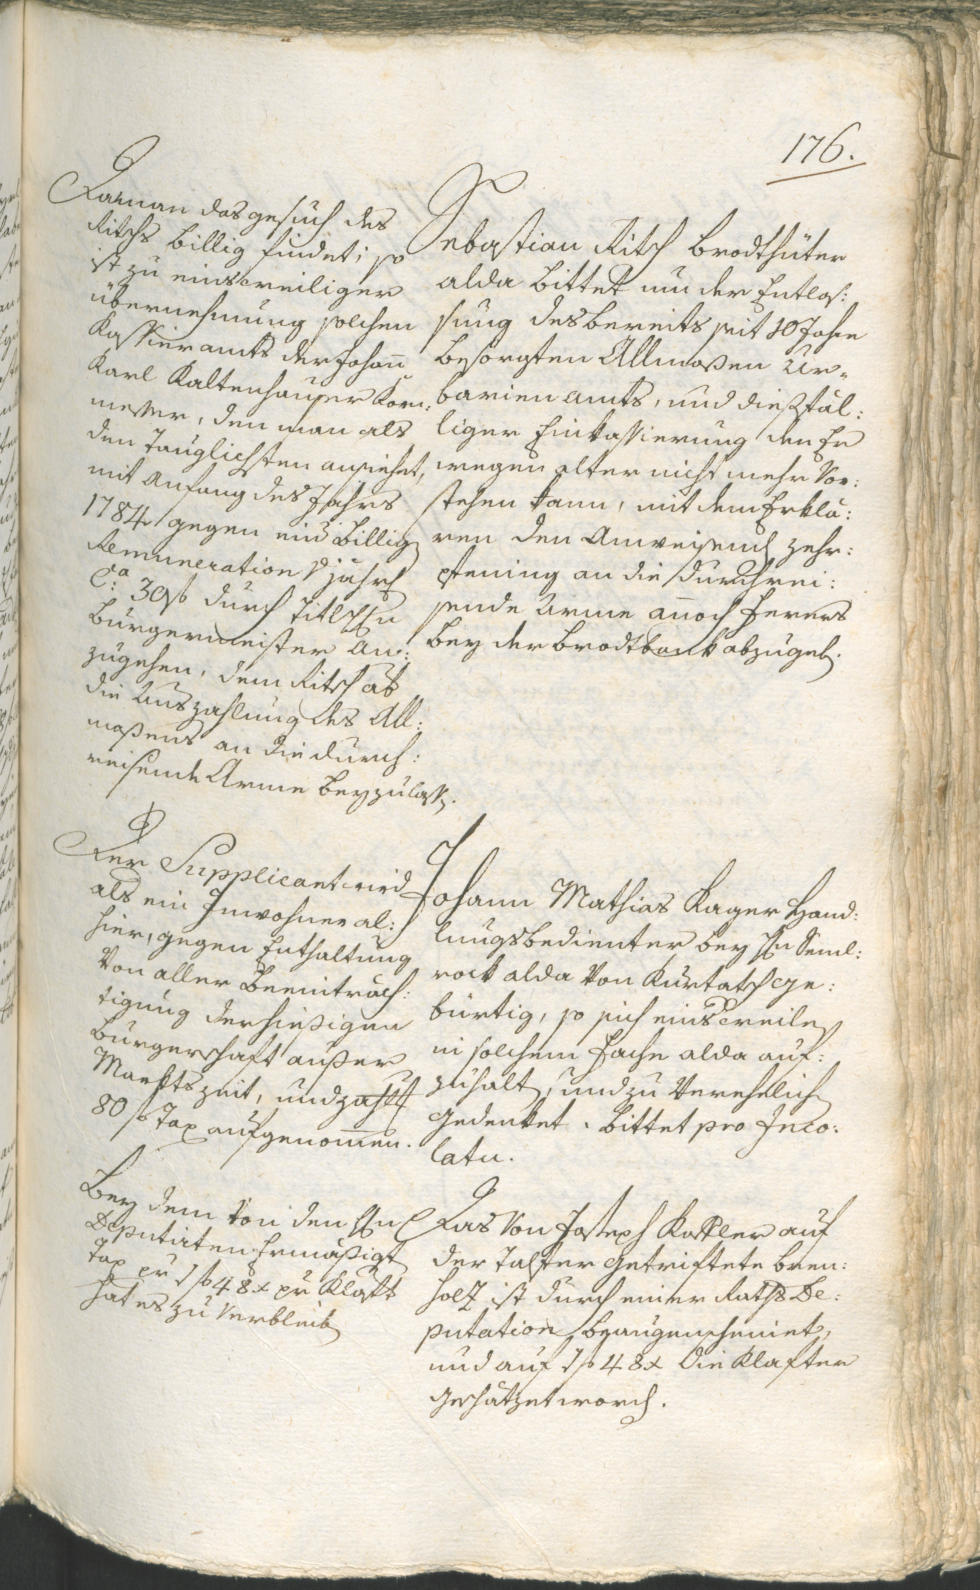 176.
Da man das gesuch des
Ritschs billig findet; so
ist zu einsweiliger
übernehmung solchen
Kassieramts der Johann
Karl Kaltenhauser Korn:
messer, den man als
den Tauglichsten ansiehet,
mit Anfang des Jahrs
1784 gegen eine billige
Remuneration jährl
Ca 30 f durch Titl Hn
Burgermeister an:
zugehen, dem Ritsch ab
die Auszahlung des All:
mosens an die durch:
reisende Arme beyzulassn.
Sebastian Ritsch Brodthüter
alda bittet um der Entlas:
sung des bereits seit 10 Jahre
besorgten Allmosen Ur=
barien amts, und diesfäl:
liger Einkassierung den Er
wegen alter nicht mehr Vor:
stehen kann, mit dem Erklä:
ren den Anweisend zehr:
pfening an die durchrei:
sende Arme annoch ferers
bey der Brodtbank abzugeb.
Der Supplicant wird
als ein Inwohner al:
hier, gegen Enthaltung
Von aller Beeinträch:
tigung der hiesigen
Burgerschaft ausser
Marktszeit, und zahlt
80 f Tax aufgenommen.
Johann Mathias Kager Hand:
lungsbedienter bey Hn Seml:
rock alda Von Kurtatsch ge:
bürtig, so sich einsweilen
in solchem Fache alda auf:
zuhalt, und zu Verehelich
gedenket. bittet pro Inco:
latu.
Bey dem Von den Hn
Deputirten Ermässigt
Tax pr 1 f 48 x pr Klaft
hat es zu Verbleib
Das Von Joseph Kofler auf
der Talfer getriftete bren:
holz ist durch einer Raths De:
putation beaugenscheinet,
und auf 1 f 48 x die Klafter
geschätzet word.